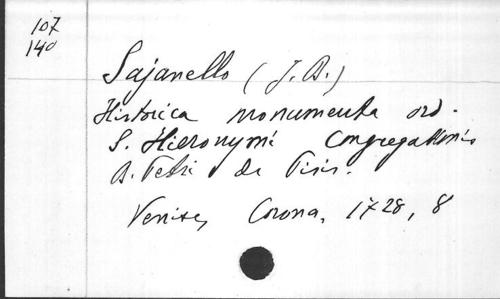 107
140
Sajanello (J. B.)
Historica monumenta ord.
S. Hieronymi Congregationis
B. Petri de Pisis.
Venise, Corona, 1728, 8